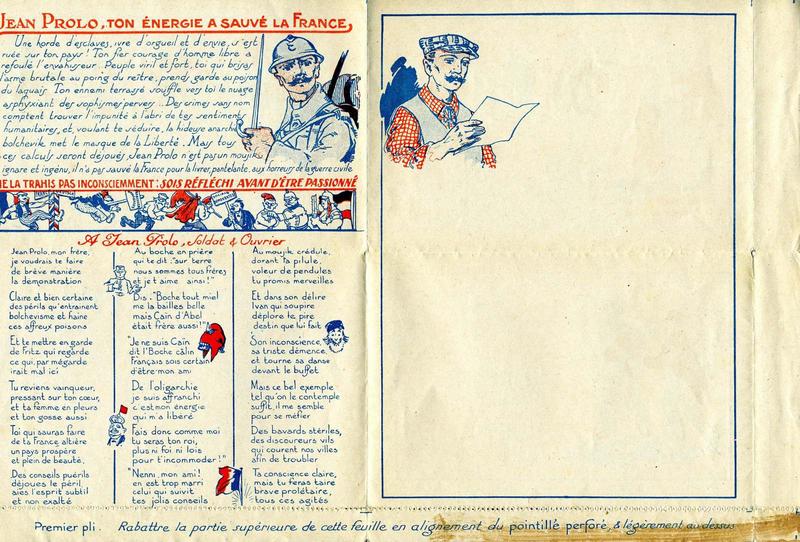 JEAN PROLO, TON ÉNERGIE A SAUVÉ LA FRANCE,
Une horde d'esclaves, ivre d'orgueil et d'envie, s'est
ruée sur ton pays! Ton fier courage d'homme libre a
refoulé l'envahisseur. Peuple viril et fort, toi qui brisas
l'arme brutale au poing du reître, prends garde au poison
du laquais. Ton ennemi terrassé souffle vers toi le nuage
asphyxiant des sophismes pervers... Des crimes sans nom
comptent trouver l'impunité à l'abri de tes sentiments
humanitaires, et, voulant te séduire, la hideuse anarchie
bolchevik met le masque de la Liberté. Mais tous
ces calculs seront déjoués, Jean Prolo n'est pas un moujik
ignare et ingénu, il n'a pas sauvé la France pour la livrer, pantelante, aux horreurs de la guerre civile
NE LA TRAHIS PAS INCONSCIEMMENT: SOIS RÉFLÉCHI AVANT D'ÊTRE PASSIONNÉ
A Jean Prolo, Soldat & Ouvrier
Jean Prolo, mon frère,
je voudrais te faire
de brève manière
la démonstration
Claire et bien certaine
des périls qu'entrainent
bolchevisme et haine
ces affreux poisons
Et te mettre en garde
de Fritz qui regarde
ce qui, par mégarde
irait mal ici
Tu reviens vainqueur,
pressant sur ton cœur,
et ta femme en pleurs
et ton gosse aussi
Toi qui sauras faire
de ta France altière
un pays prospère
et plein de beauté.
Des conseils puérils
déjoues le péril,
aies l'esprit subtil
et non exalté
Au boche en prière
qui te dit: "sur terre
nous sommes tous frères
et je t'aime ainsi!"
Dis: "Boche tout miel
me la bailles belle
mais Caïn d'Abel
était frère aussi!"
"Je ne suis Caïn
dit l'Boche câlin
Français sois certain
d'être mon ami
De l'oligarchie
je suis affranchi
c'est mon énergie
qui m'a libéré
Fais donc comme moi
tu seras ton roi,
plus ni foi ni lois
pour t'incommoder!"
"Nenni, mon ami!
en est trop marri
celui qui suivit
tes jolis conseils
Au moujik crédule,
dorant ta pilule,
voleur de pendules
tu promis merveilles
Et dans son délire
Ivan qui soupire
déplore le pire
destin que lui fait
Son inconscience,
sa triste démence,
et tourne sa danse
devant le buffet
Mais ce bel exemple
tel qu'on le contemple
suffit, il me semble
pour se méfier
Des bavards stériles,
des discoureurs vils
qui courent nos villes
afin de troubler
Ta conscience claire,
mais tu feras taire
brave prolétaire,
tous ces agités
Premier pli. Rabattre la partie supérieure de cette feuille en alignement du pointillé perforé, & légèrement au dessus